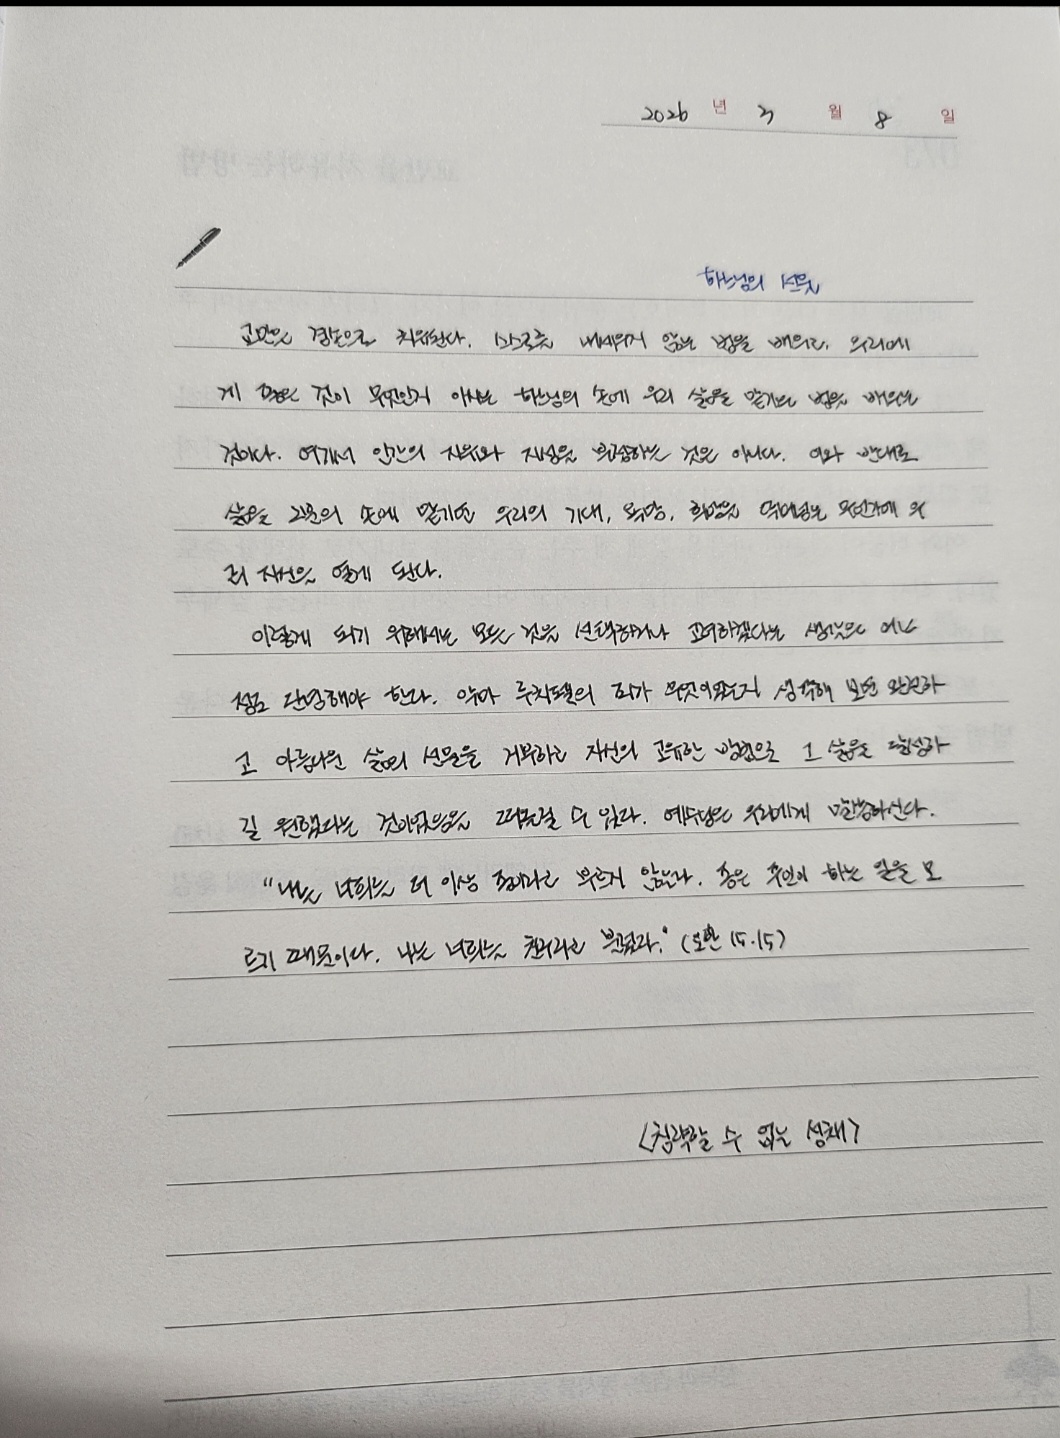 2026 년 3 월 8 일
하느님의 선물
교만은 겸손으로 치유된다. 스스로를 내세우지 않는 법을 배우고, 우리에
게 좋은 것이 무엇인지 아시는 하느님의 손에 우리 삶을 맡기는 법을 배우는
것이다. 여기서 인간의 자유와 지성을 부정하는 것은 아니다. 이와 반대로
삶을 그분의 손에 맡기면 우리의 기대, 욕망, 희망을 뛰어넘는 무언가에 우
리 자신을 열게 된다.
이렇게 되기 위해서는 모든 것을 선택하거나 고려하겠다는 생각을 어느
정도 단념해야 한다. 아마 루치펠의 죄가 무엇이었는지 생각해 보면 완전하
고 아름다운 삶의 선물을 거부하고 자신의 고유한 방법으로 그 삶을 달성하
길 원했다는 것이었음을 떠올릴 수 있다. 예수님은 우리에게 말씀하신다.
"나는 너희를 더 이상 종이라고 부르지 않는다. 종은 주인이 하는 일을 모
르기 때문이다. 나는 너희를 친구라고 불렀다." (요한 15.15)
<침략할 수 없는 성채>